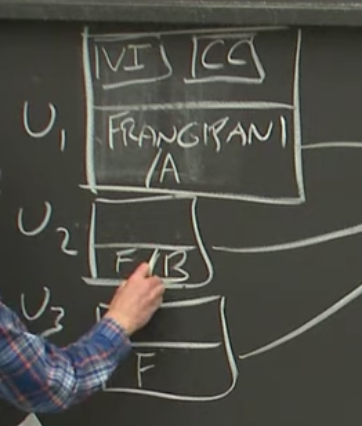 VI CC
U1 FRANGIPANI
/A
U2
F/B
U3
F